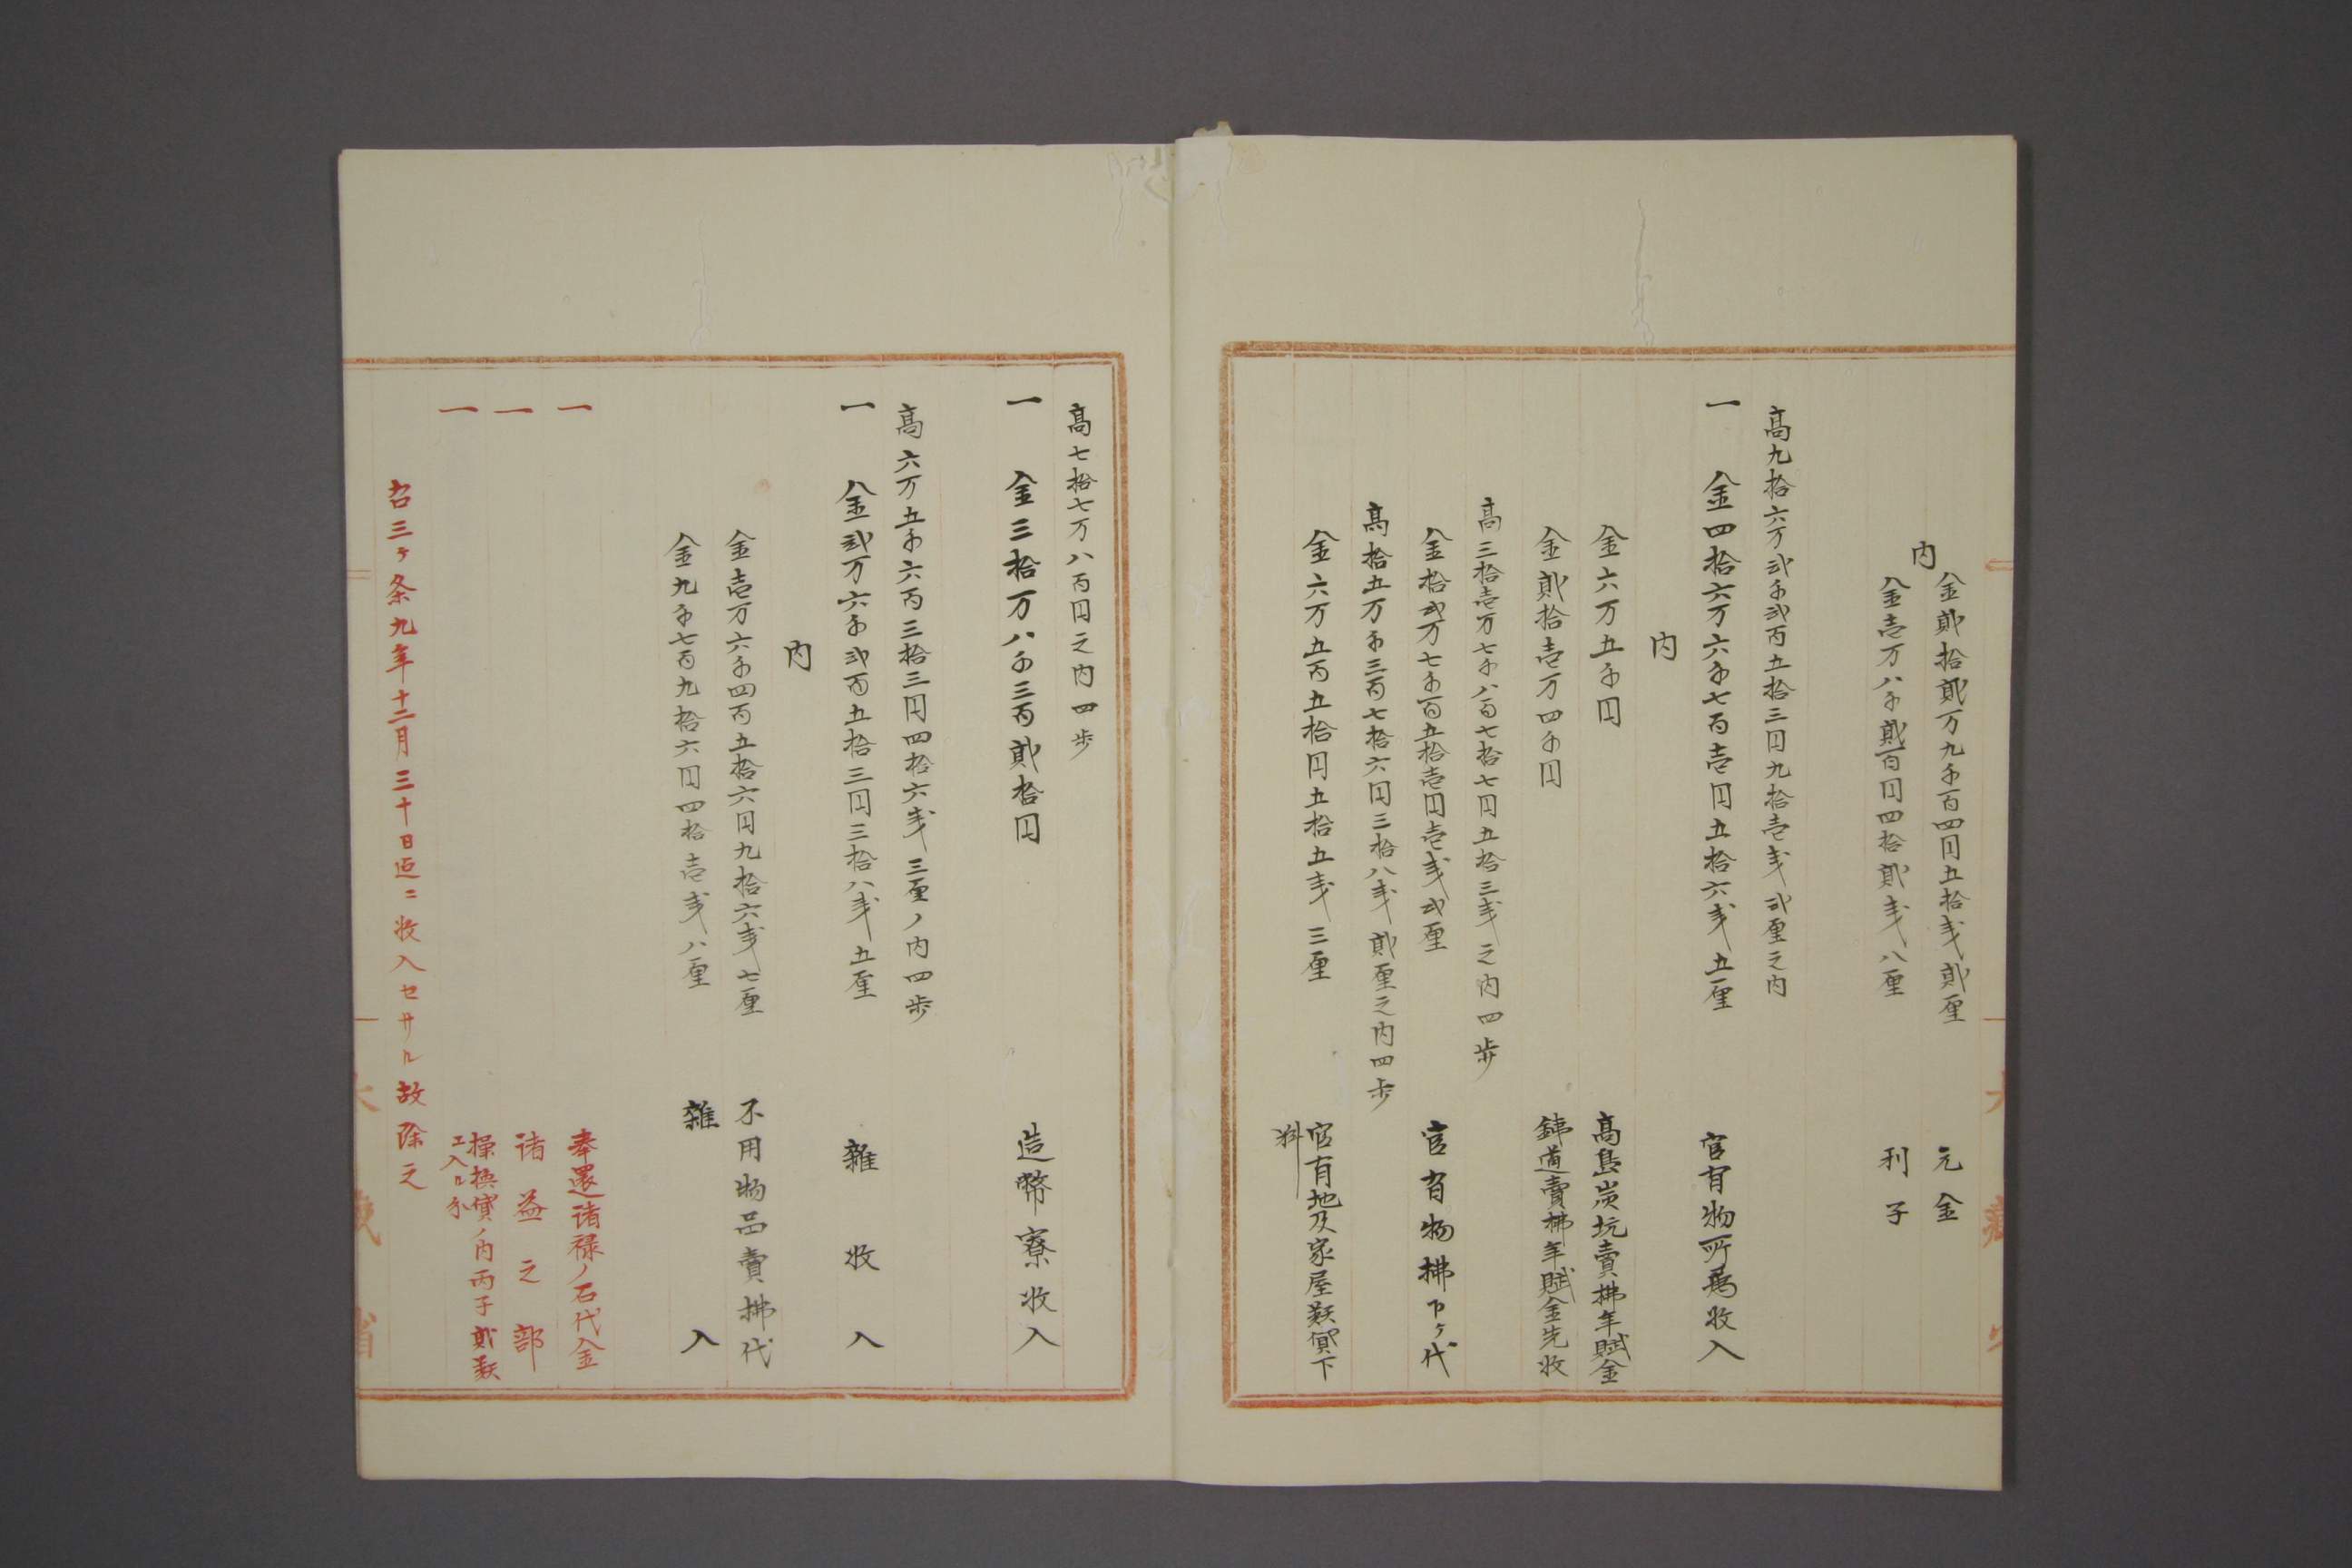 内
金貳拾貳万九千百四円五拾戋貳厘 元金
金壱万八千貳百円四拾貳戋八厘 利子
高九拾六万弐千弐百五拾三円九拾壱戋弐厘之内
一 金四拾六万六千七百壱円五拾六戋五厘 官有物所属收入
内
金六万五千円 高島炭坑賣拂年賦金
金貳拾壱万四千円 鉄道賣拂年賦金先收
高三拾壱万七千八百七拾七円五拾三戋之内四歩
金拾弐万七千百五拾壱円壱戋弐厘 官有物拂下ケ代
高拾五万千三百七拾六円三拾八戋貳厘之内四歩
金六万五百五拾円五拾五戋三厘 官有地及家屋類貸下
料
高七拾七万八百円之内四歩
一 金三拾万八千三百貳拾円 造幣寮收入
高六万五千六百三拾三円四拾六戋三厘ノ内四歩
一 金弐万六千弐百五拾三円三拾八戋五厘 雜收入
内
金壱万六千四百五拾六円九拾六戋七厘 不用物品賣拂代
金九千七百九拾六円四拾壱戋八厘 雜入
一 奉還諸禄ノ石代金
一 諸益之部
一 操換貸ノ内丙子貳类
エ入ル分
右三ケ条九年十二月三十日迄ニ收入セサル故除之
大藏省